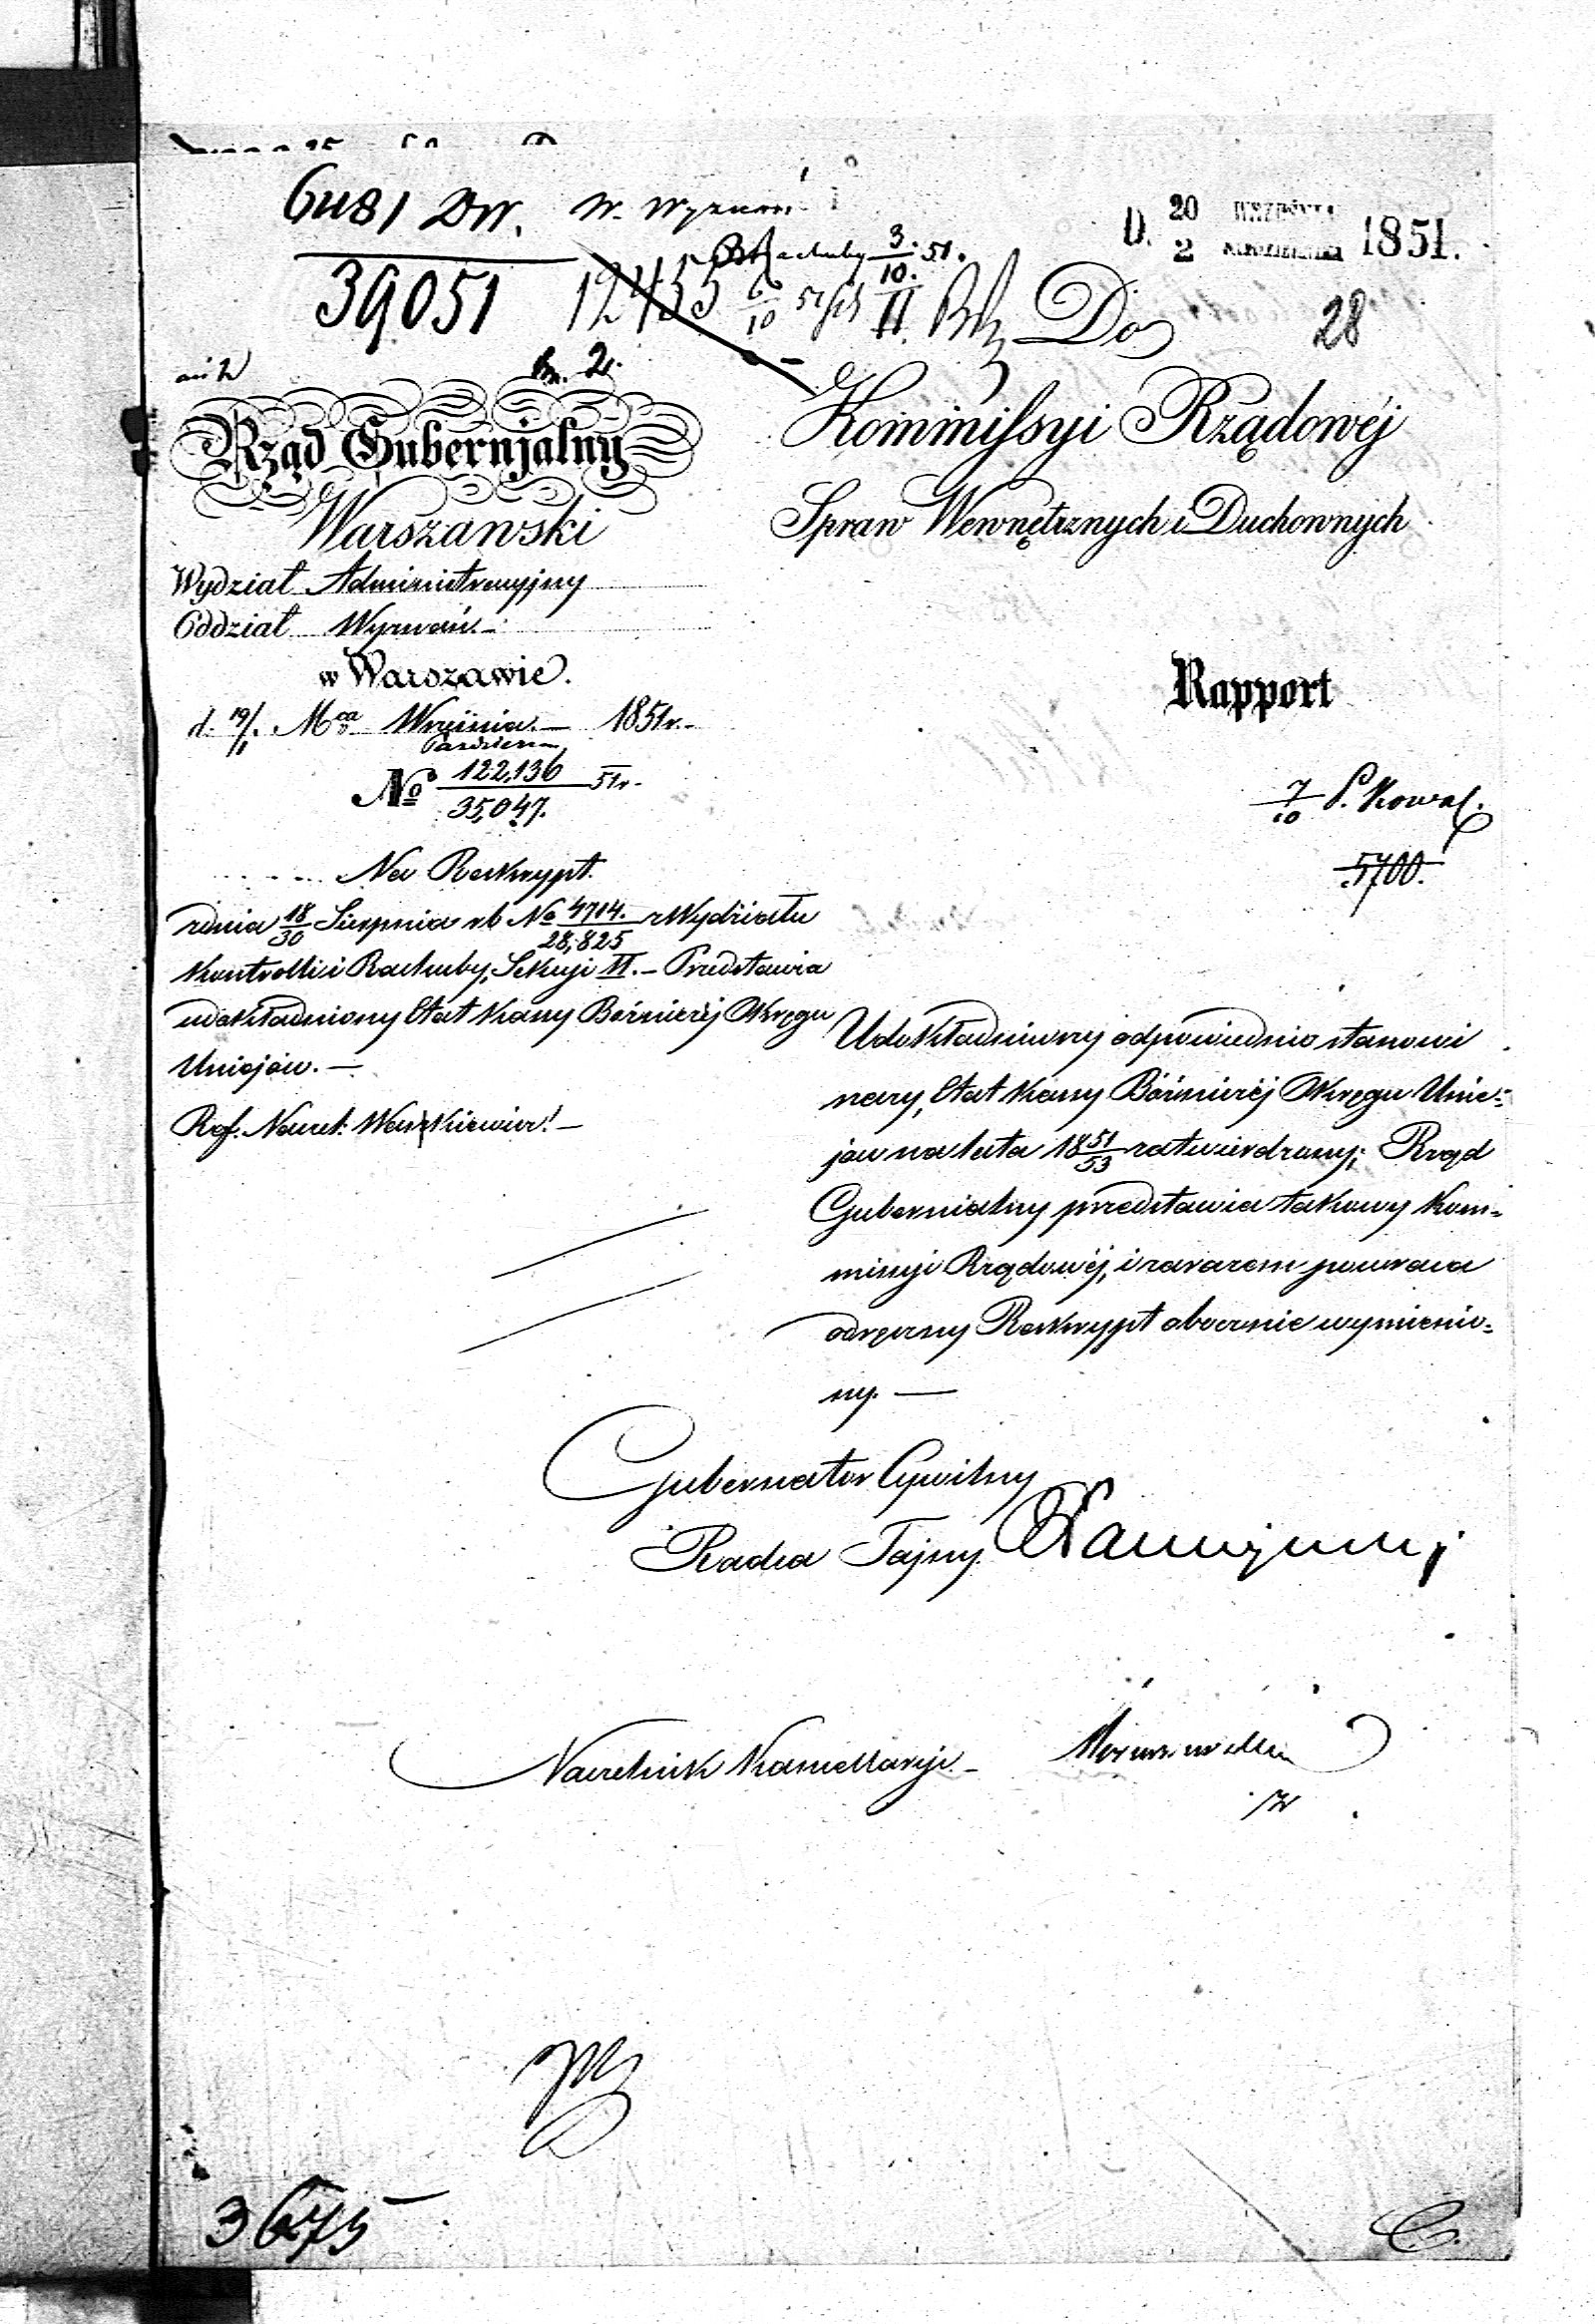 6481 DW. W. Wyznań
39051 12455 6/10 51 II.
Rachuby 3/10. 51.
D. 20 WRZEŚNIA / 2 PAŹDZIERNIKA 1851.
28
Do
Rząd Gubernjalny
Warszawski
Kommissyi Rządowéj
Spraw Wewnętrznych i Duchownych
Wydział Administracyjny
Oddział Wyznań.
w Warszawie.
d. 19/1. Mca Września / Październ 1851r.
No 122,136 / 35,047. 51r.
Rapport
7/10 P. Kowal.
5700.
Na Reskrypt
z dnia 18/30 Sierpnia rb No 4714. / 28,825 z Wydziału
Kontrolli i Rachuby, Sekcji II. – Przedstawia
udokładniony Etat Kassy Bóżniczéj Okręgu
Uniejów. —
Ref. Naczel:
Udokładniony odpowiednio stanowi
rzeczy, Etat Kassy Bóżniczéj Okręgu Unie-
jów na lata 1851/53 zatwierdzony; Rząd
Gubernialny przedstawia takowy Kom-
missyi Rządowéj, i zarazem powraca
odręczny Reskrypt obocznie wymienio-
ny. —
Gubernator Cywilny
Radca Tajny
Naczelnik Kancellaryi
3675